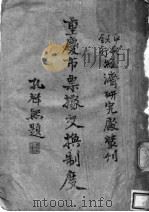 中央銀行經濟研究處叢刊
重慶市票據交換制度
孔祥熙題